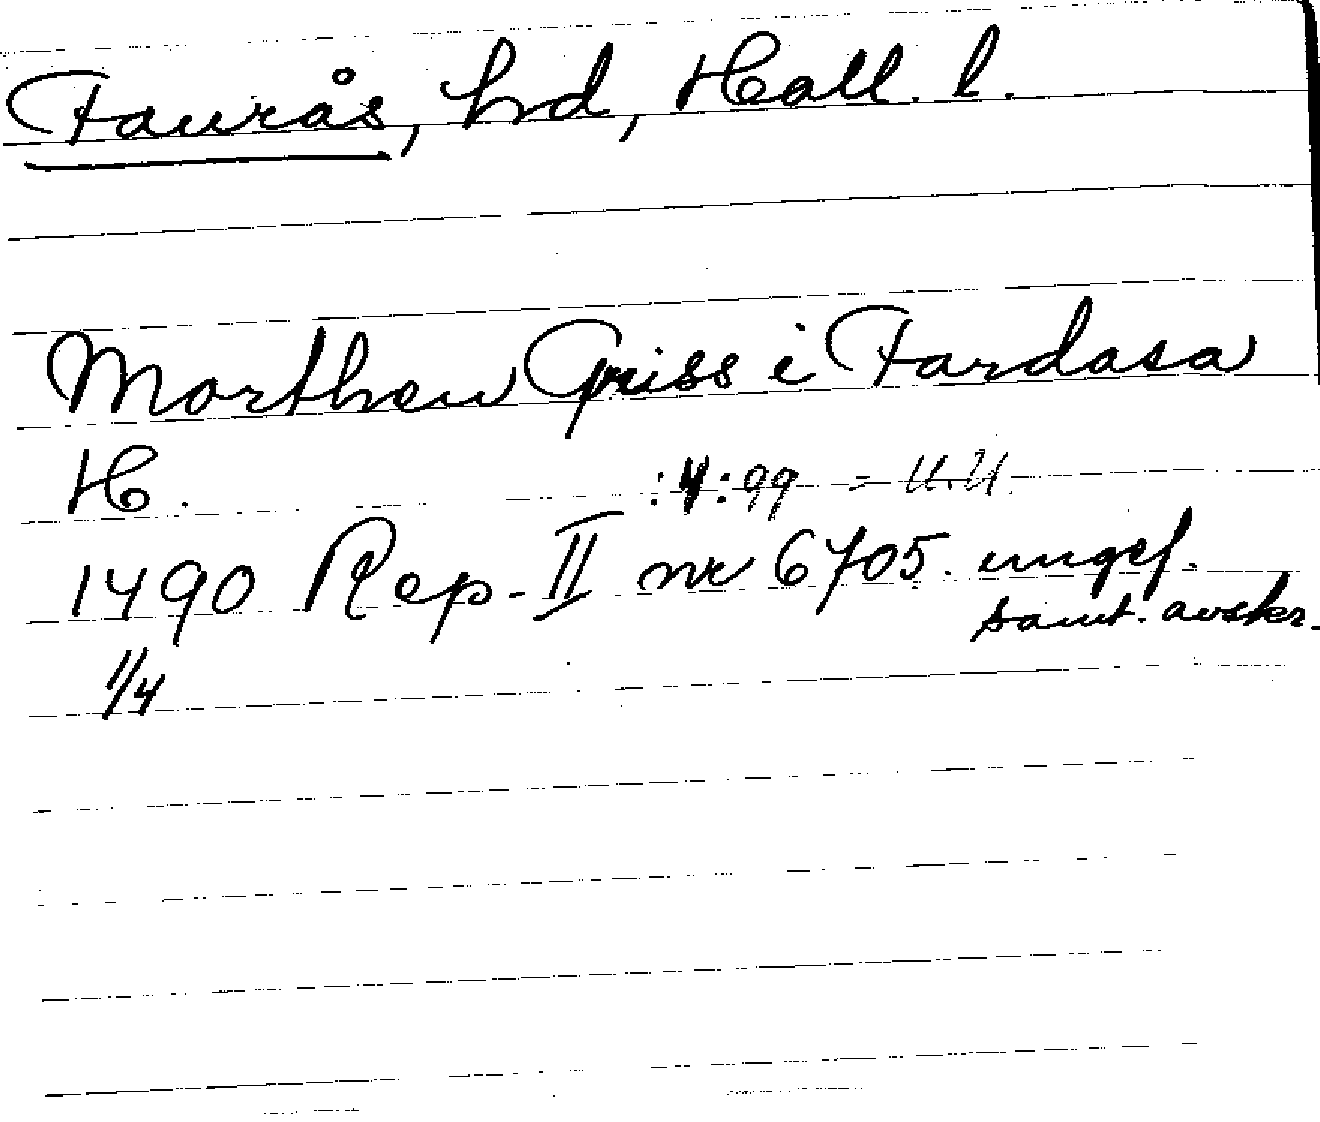 Faurås, hd, Hall. l.
Morthen Griss i Fardasa
H. :4:99 = U.U.
1490 Rep. II nr 6705. ungef.
samt. avskr.
1/4